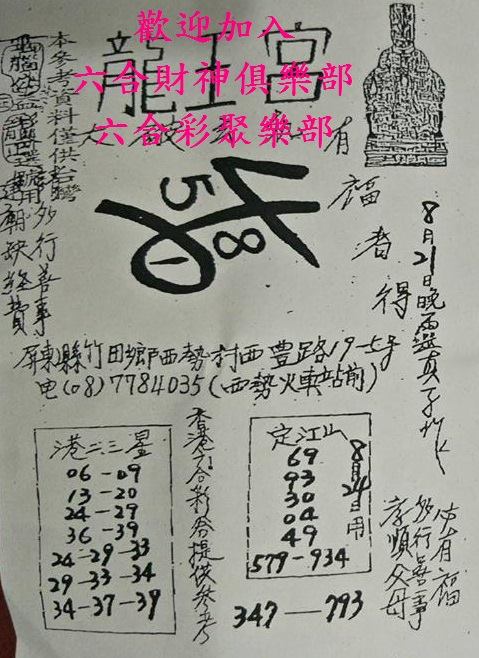 歡迎加入
六合財神俱樂部
六合彩聚樂部
龍王宮
本參考資料僅供
多行善事
廟缺經費
有福者得
8月21日晚
5
8
1
屏東縣竹田鄉西勢村西豐路19-5号
电(08)7784035(西勢火車站前)
港二三星
06-09
13-20
24-29
36-39
24-29-33
29-33-34
34-37-39
香港六合彩券提供參考
定江山
69
93
30
04
49
579-934
8月24日用
347—793
必有福
多行善事
孝順父母